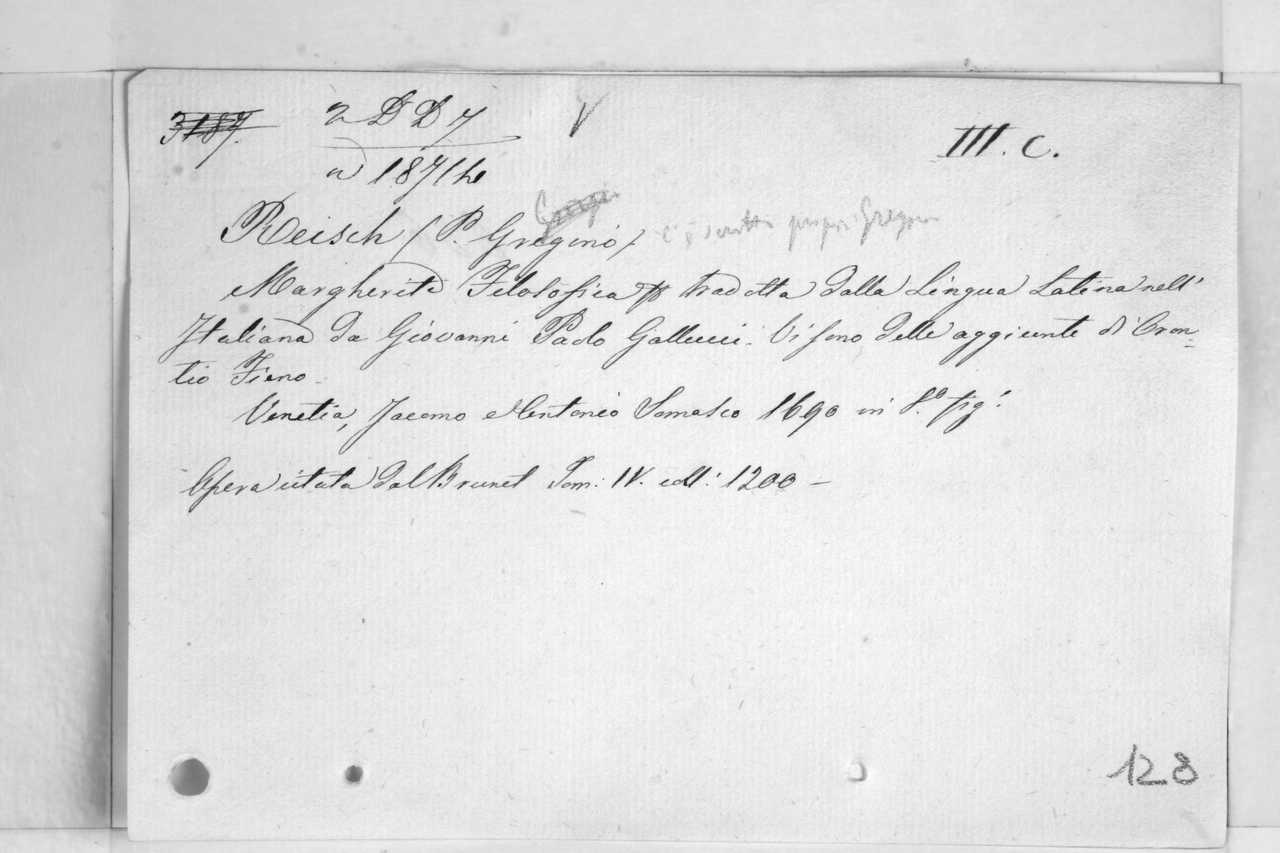 3187. 2 D D 7 V III. C.
a 1871 he
Reisch (P. Gregorio) è scritto propri Gregorio
Margherita Filosofica tradotta dalla Lingua Latina nell'
Italiana da Giovanni Paolo Gallucci. Vi sono delle aggiunte di Oron-
tio Fieno.
Venetia, Jacomo Antonio Somasco 1690 in 8.° fig.
Opera citata dal Brunet Tom: IV. coll: 1200 –
128